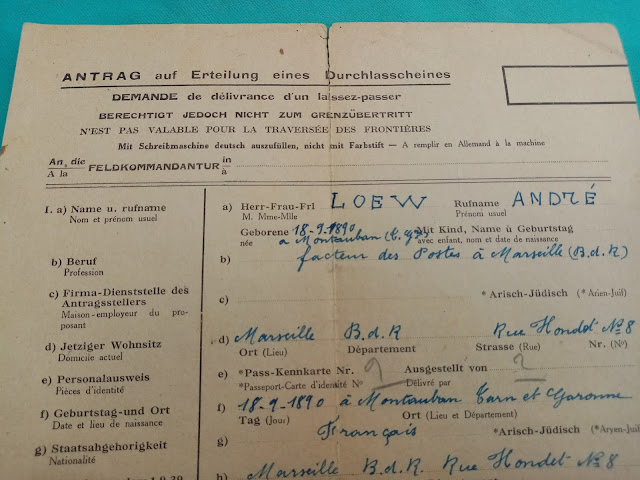 ANTRAG auf Erteilung eines Durchlasscheines
DEMANDE de délivrance d'un laissez-passer
BERECHTIGT JEDOCH NICHT ZUM GRENZÜBERTRITT
N'EST PAS VALABLE POUR LA TRAVERSÉE DES FRONTIÈRES
Mit Schreibmaschine deutsch auszufüllen, nicht mit Farbstift — A remplir en Allemand à la machine
An, die FELDKOMMANDANTUR in
A la à
I. a) Name u. rufname
Nom et prénom usuel
a) Herr-Frau-Frl LOEW Rufname ANDRÉ
M. Mme-Mlle Prénom usuel
Geborene 18-9-1890 Mit Kind, Name ù Geburtstag
née à Montauban (T. G.) avec enfant, nom et date de naissance
b) Beruf
Profession
b) facteur des Postes à Marseille (B.d.R)
c) Firma-Dienststelle des Antragsstellers
Maison-employeur du pro-
posant
c) *Arisch-Jüdisch (*Arien-Juif)
d) Jetziger Wohnsitz
Domicile actuel
d) Marseille B.d.R Rue Hondet N° 8
Ort (Lieu) Département Strasse (Rue) Nr. (N°)
e) Personalausweis
Pièces d'identité
e) *Pass-Kennkarte Nr. ? Ausgestellt von ?
*Passeport-Carte d'identité N° Délivré par
f) Geburtstag-und Ort
Date et lieu de naissance
f) 18-9-1890 à Montauban Tarn et Garonne
Tag (Jour) Ort (Lieu et Département)
g) Staatsahgehorigkeit
Nationalité
g) Français *Arisch-Jüdisch (*Aryen-Juif
h) Marseille B.d.R. Rue Hondet N° 8